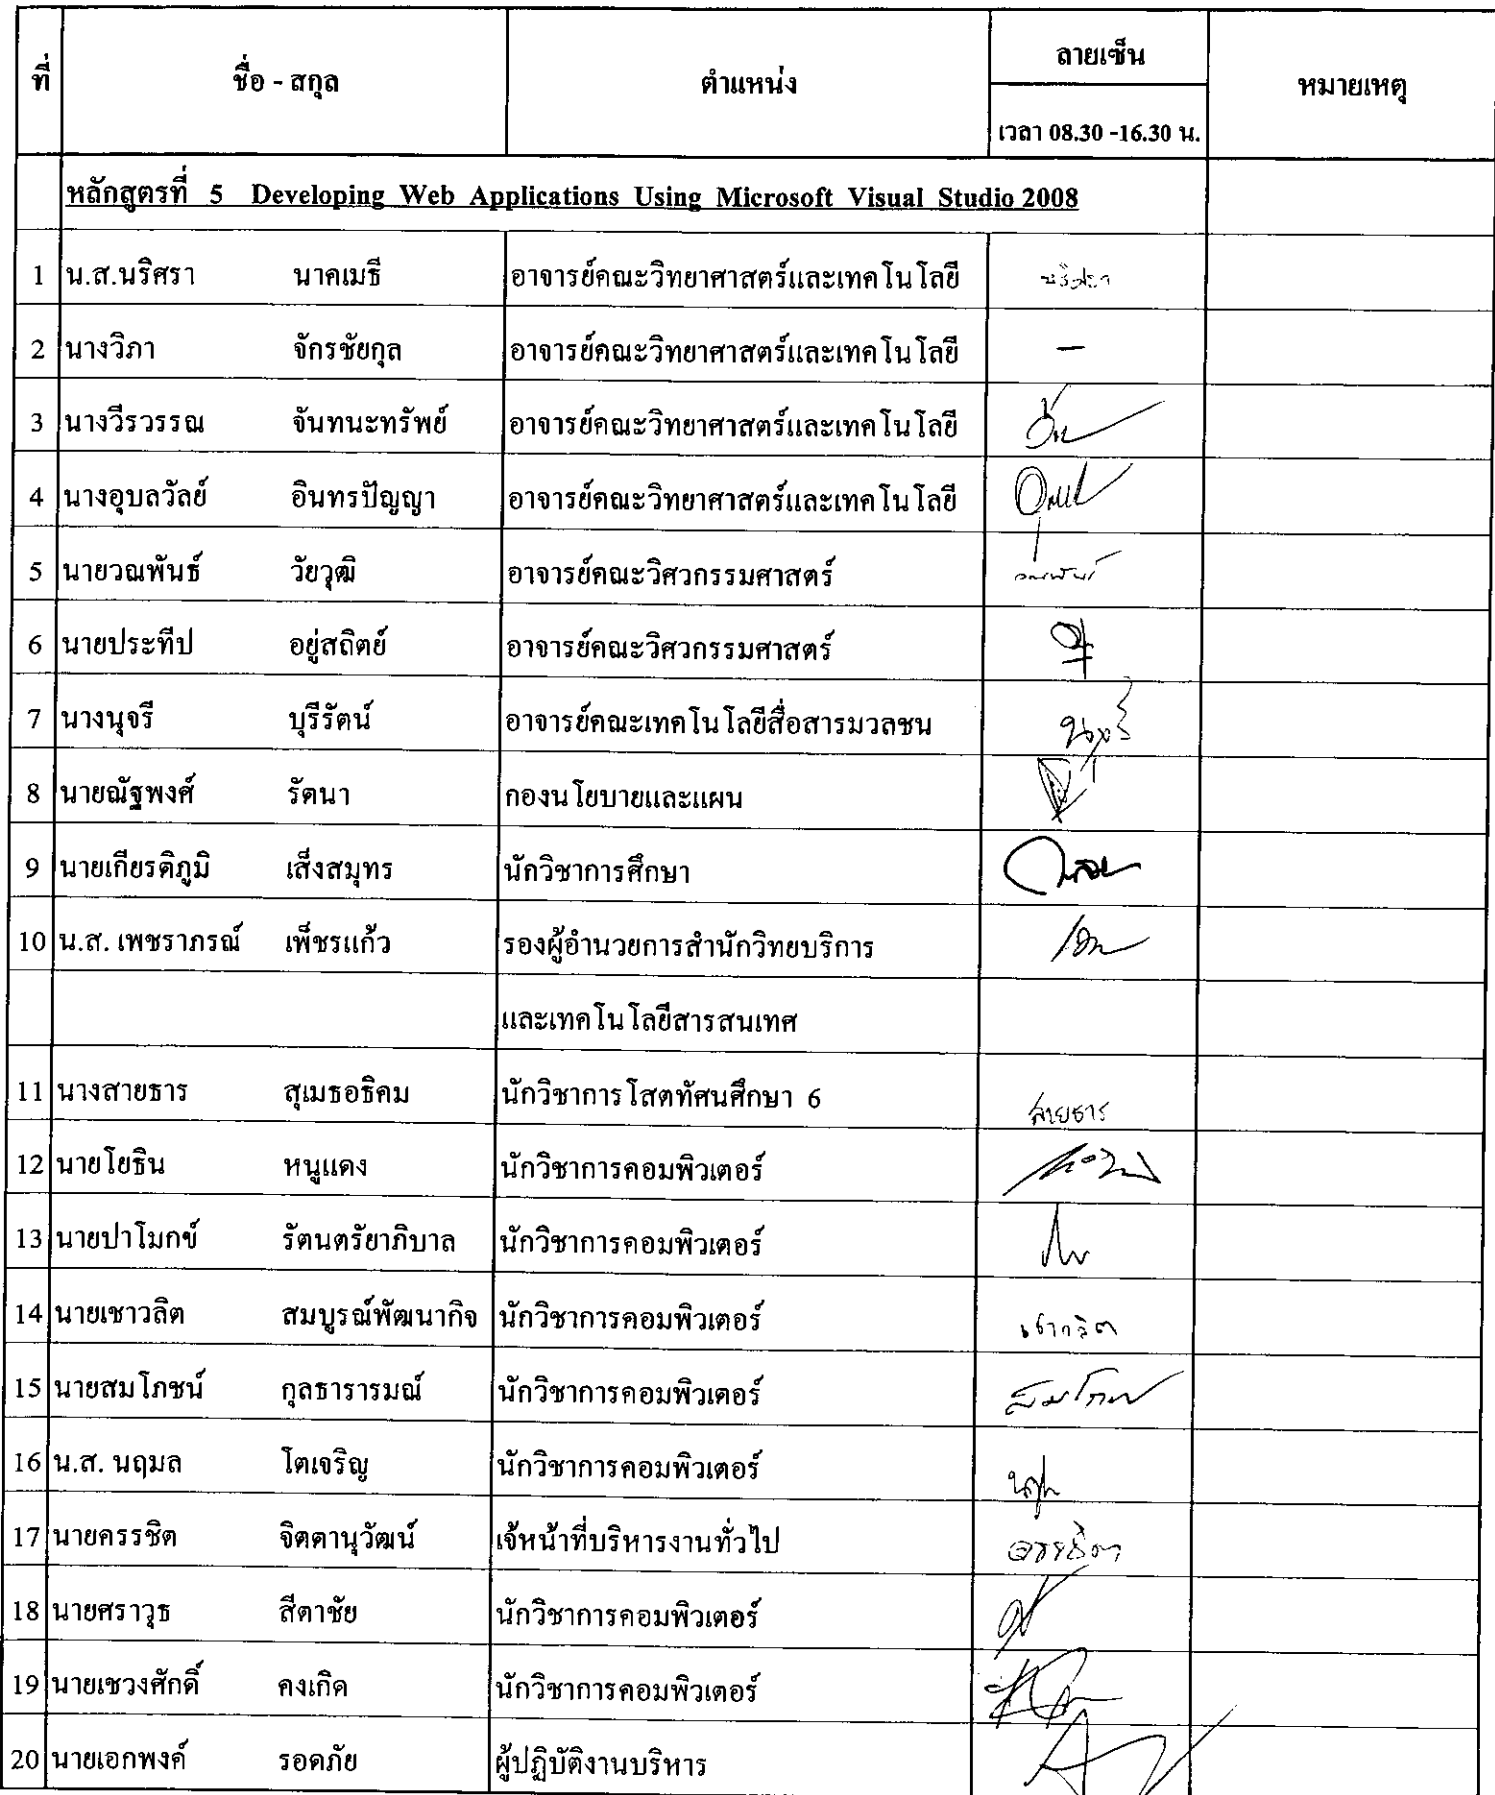 ที่ ชื่อ - สกุล ตำแหน่ง ลายเซ็น หมายเหตุ
เวลา 08.30 -16.30 น.
หลักสูตรที่ 5 Developing Web Applications Using Microsoft Visual Studio 2008
1 น.ส.นริศรา นาคเมธี อาจารย์คณะวิทยาศาสตร์และเทคโนโลยี นริศรา
2 นางวิภา จักรชัยกุล อาจารย์คณะวิทยาศาสตร์และเทคโนโลยี -
3 นางวีรวรรณ จันทนะทรัพย์ อาจารย์คณะวิทยาศาสตร์และเทคโนโลยี
4 นางอุบลวัลย์ อินทรปัญญา อาจารย์คณะวิทยาศาสตร์และเทคโนโลยี
5 นายวณพันธ์ วัยวุฒิ อาจารย์คณะวิศวกรรมศาสตร์ วณพันธ์
6 นายประทีป อยู่สถิตย์ อาจารย์คณะวิศวกรรมศาสตร์
7 นางนุจรี บุรีรัตน์ อาจารย์คณะเทคโนโลยีสื่อสารมวลชน นุจรี
8 นายณัฐพงศ์ รัตนา กองนโยบายและแผน
9 นายเกียรติภูมิ เส็งสมุทร นักวิชาการศึกษา
10 น.ส. เพชราภรณ์ เพ็ชรแก้ว รองผู้อำนวยการสำนักวิทยบริการ
และเทคโนโลยีสารสนเทศ
11 นางสายธาร สุเมธอธิคม นักวิชาการโสตทัศนศึกษา 6 สายธาร
12 นายโยธิน หนูแดง นักวิชาการคอมพิวเตอร์
13 นายปาโมกข์ รัตนตรัยาภิบาล นักวิชาการคอมพิวเตอร์
14 นายเชาวลิต สมบูรณ์พัฒนากิจ นักวิชาการคอมพิวเตอร์ เชาวลิต
15 นายสมโภชน์ กุลธารารมณ์ นักวิชาการคอมพิวเตอร์ สมโภชน์
16 น.ส. นฤมล โตเจริญ นักวิชาการคอมพิวเตอร์
17 นายครรชิต จิตตานุวัฒน์ เจ้หน้าที่บริหารงานทั่วไป ครรชิต
18 นายศราวุธ สีตาชัย นักวิชาการคอมพิวเตอร์
19 นายเชวงศักดิ์ คงเกิด นักวิชาการคอมพิวเตอร์
20 นายเอกพงค์ รอดภัย ผู้ปฏิบัติงานบริหาร